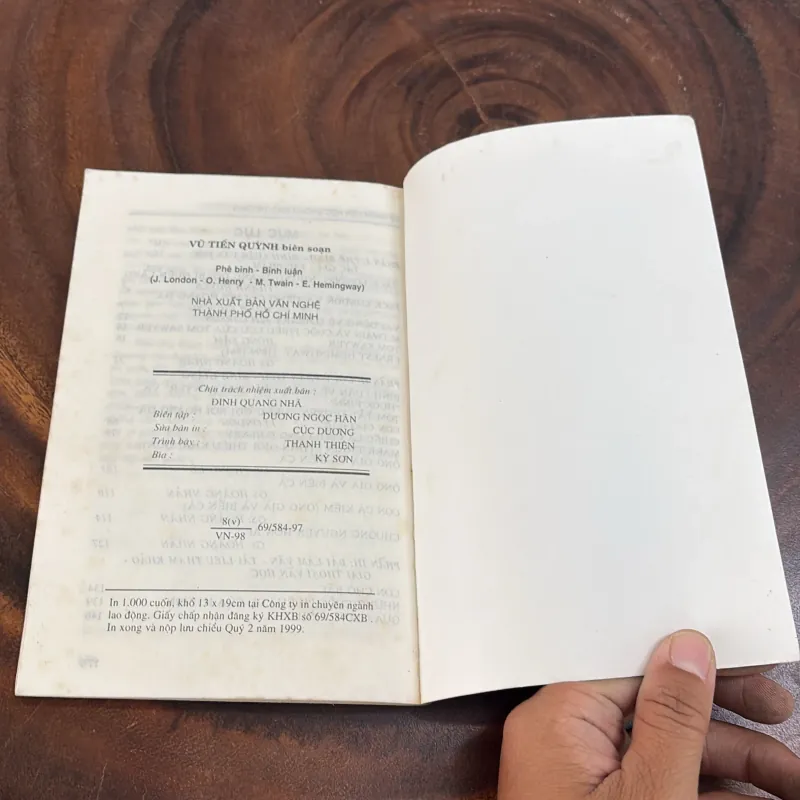 VŨ TIẾN QUỲNH biên soạn
Phê bình - Bình luận
(J. London - O. Henry - M. Twain - E. Hemingway)
NHÀ XUẤT BẢN VĂN NGHỆ
THÀNH PHỐ HỒ CHÍ MINH
Chịu trách nhiệm xuất bản :
ĐINH QUANG NHÃ
Biên tập : DƯƠNG NGỌC HÂN
Sửa bản in : CÚC DƯƠNG
Trình bày : THANH THIÊN
Bìa : KỲ SƠN
8(v)
VN-98 69/584-97
In 1.000 cuốn, khổ 13 x 19cm tại Công ty in chuyên ngành
lao động. Giấy chấp nhận đăng ký KHXB số 69/584CXB
In xong và nộp lưu chiểu Quý 2 năm 1999.